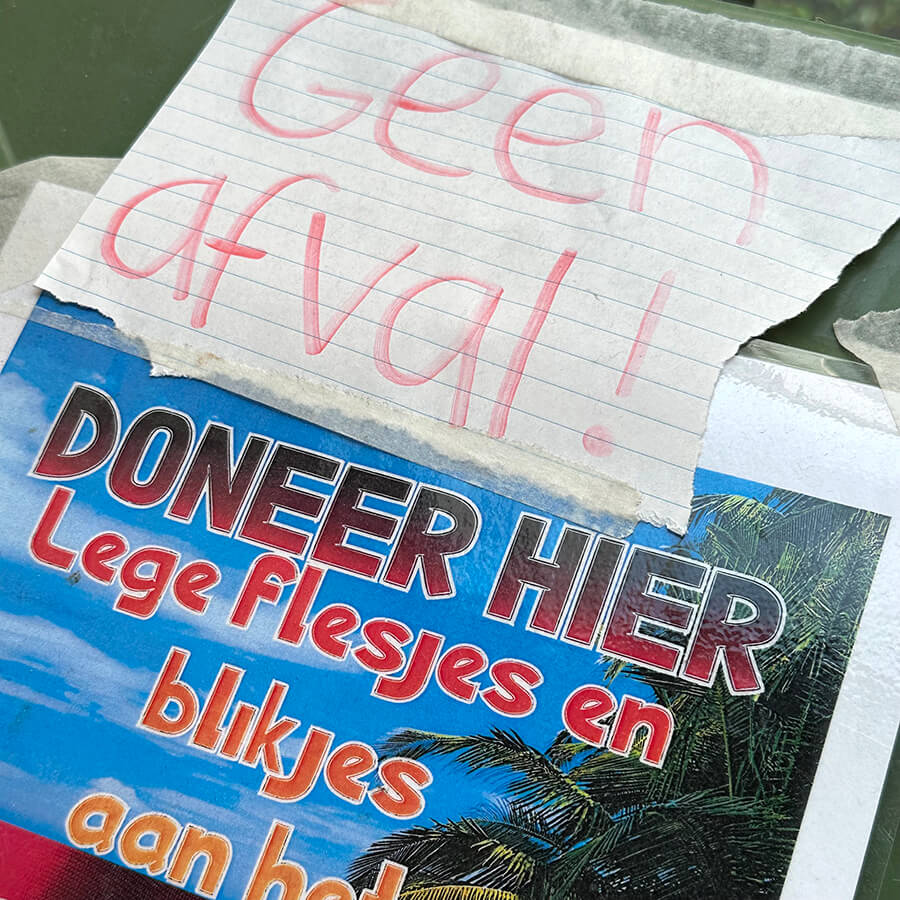 Geen
afval!
DONEER HIER
Lege flesjes en
blikjes
aan het